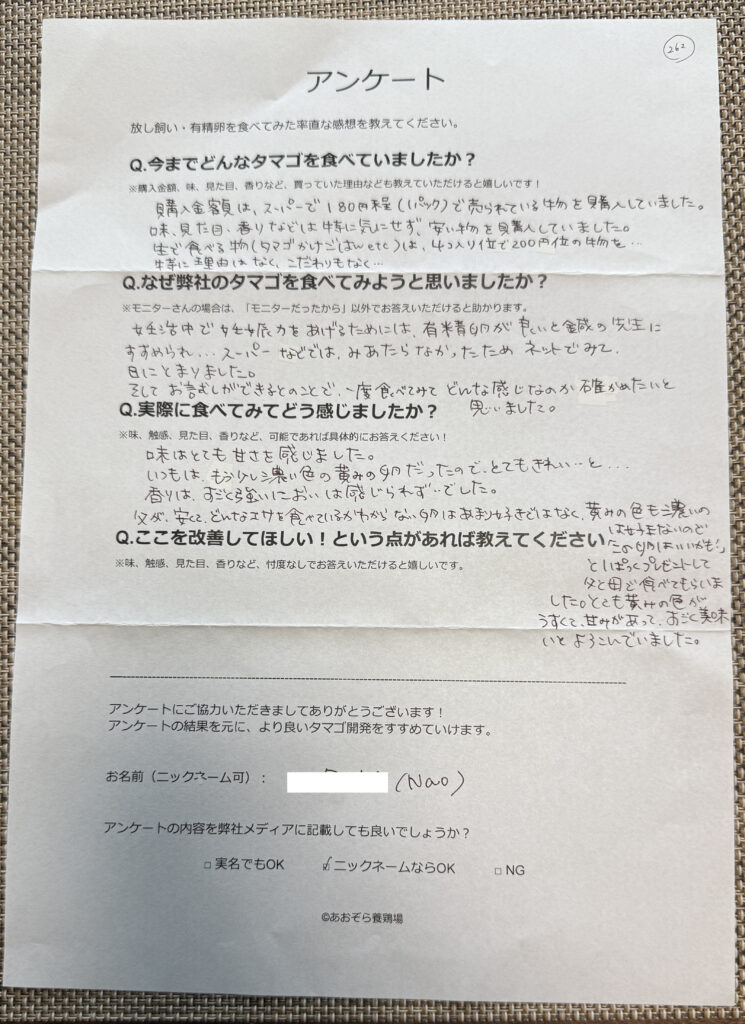 262
アンケート
放し飼い・有精卵を食べてみた率直な感想を教えてください。
Q.今までどんなタマゴを食べていましたか？
※購入金額、味、見た目、香りなど、買っていた理由なども教えていただけると嬉しいです！
購入金額は、スーパーで180円程(1パック)で売られている物を購入していました。
味、見た目、香りなどは特に気にせず、安い物を購入していました。
生で食べる物(タマゴかけごはんetc)は、4コ入り位で200円位の物を…
特に理由はなく、こだわりもなく…
Q.なぜ弊社のタマゴを食べてみようと思いましたか？
※モニターさんの場合は、「モニターだったから」以外でお答えいただけると助かります。
妊活中で妊娠力をあげるためには、有精卵が良いと鍼の先生に
すすめられ…スーパーなどでは、みあたらなかったためネットでみて、
目にとまりました。
そしてお試しができるとのことで、一度食べてみてどんな感じなのか確かめたいと
思いました。
Q.実際に食べてみてどう感じましたか？
※味、触感、見た目、香りなど、可能であれば具体的にお答えください！
味はとても甘さを感じました。
いつもは、もう少し濃い色の黄みの卵だったので、とてもきれい…と…
香りは、すごく強いにおいは感じられず…でした。
父が、安くて、どんなエサを食べているかわからない卵はあまり好きではなく、黄みの色も濃いの
は好まないので
「この卵はいいかも!」
と1ぱっくプレゼントして
父と母で食べてもらいま
した。とても黄みの色が
うすくて、甘みがあって、すごく美味し
いとよろこんでいました。
Q.ここを改善してほしい！という点があれば教えてください
※味、触感、見た目、香りなど、忖度なしでお答えいただけると嬉しいです。
アンケートにご協力いただきましてありがとうございます！
アンケートの結果を元に、より良いタマゴ開発をすすめていけます。
お名前（ニックネーム可）： (Nao)
アンケートの内容を弊社メディアに記載しても良いでしょうか？
□ 実名でもOK ☑ ニックネームならOK □ NG
©あおぞら養鶏場